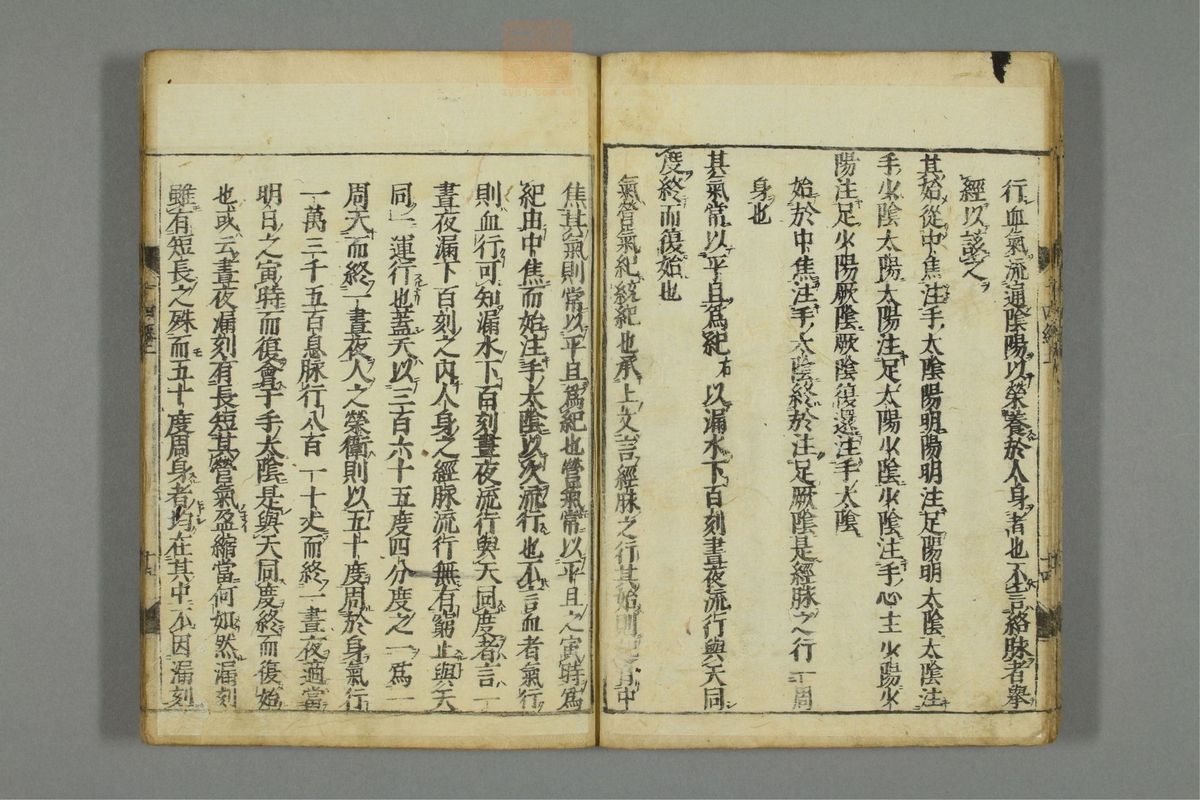 行血氣流通陰陽以榮養於人身者也不言絡脉者擧
經以該之
其始從中焦注手太陰陽明陽明注足陽明太陰太陰注
手少陰太陽太陽注足太陽少陰少陰注手心主少陽少
陽注足少陽厥陰厥陰復還注手太陰
始於中焦注手太陰終於注足厥陰是經脉之行一周
身也
其氣常以平旦爲紀 以漏水下百刻晝夜流行與天同
度終而復始也
氣營氣紀統紀也承上文言經脉之行其始則起自中
焦其氣則常以平旦爲紀也營氣常以平旦之寅時爲
紀由中焦而始注手太陰以次流行也不言血者氣行
則血行可知漏水下百刻晝夜流行與天同度者言一
晝夜漏下百刻之内人身之經脉流行無有窮止與天
同一運行也蓋天以三百六十五度四分度之一爲一
周天而終一晝夜人之榮衛則以五十度周於身氣行
一萬三千五百息脉行八百一十丈而終一晝夜適當
明日之寅時而復會于手太陰是與天同度終而復始
也或云晝夜漏刻有長短其營氣盈縮當何如然漏刻
雖有短長之殊而五十度周身者均在其中不因漏刻